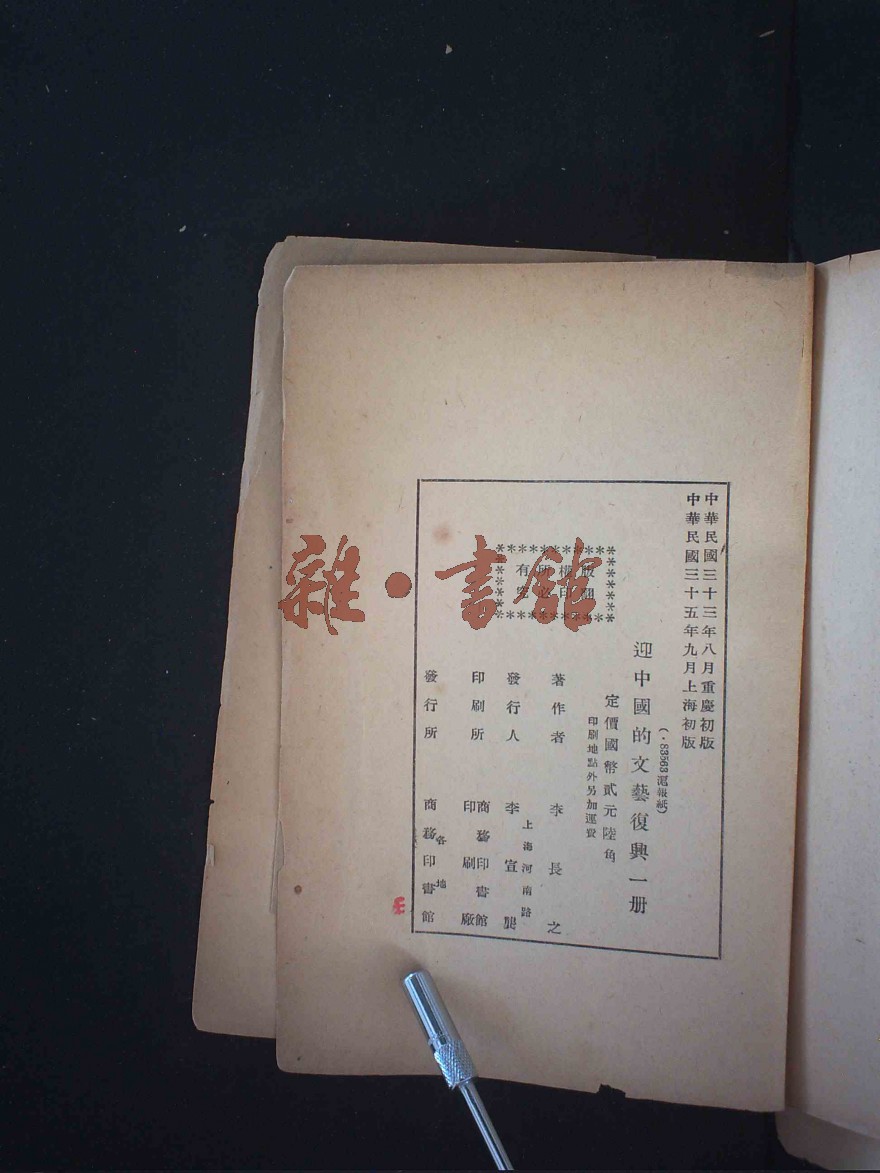 中華民國三十三年八月重慶初版
中華民國三十五年九月上海初版
(·83563滬報紙)
迎中國的文藝復興一册
定價國幣貳元陸角
印刷地點外另加運費
版權所有
翻印必究
著作者 李長之
上海河南路
發行人 李宣龔
印刷所 商務印書館
印刷廠
發行所 商務印書館
各地
雜·書館